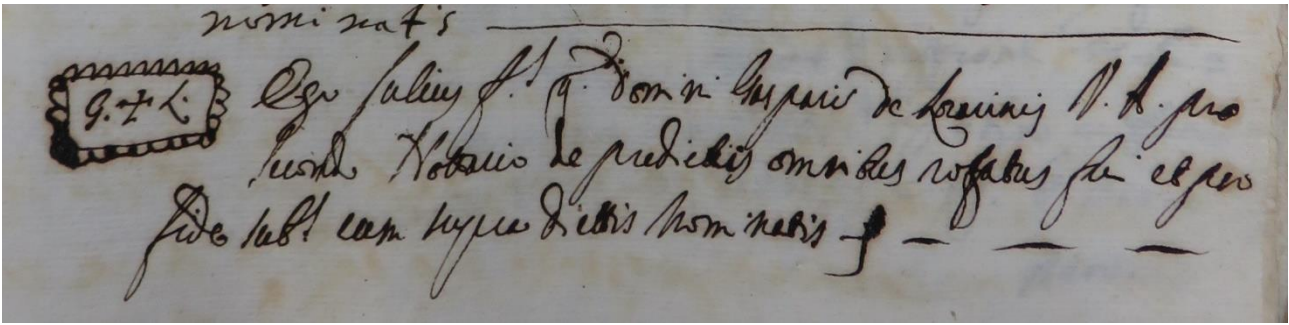 nominatis
G. + L.
Ego Julius f.s q. Domini Gasparis de V. A. pro
secundo Notario de predictis omnibus rogatus fui et pro
fide subs. cum supra dictis nominatis